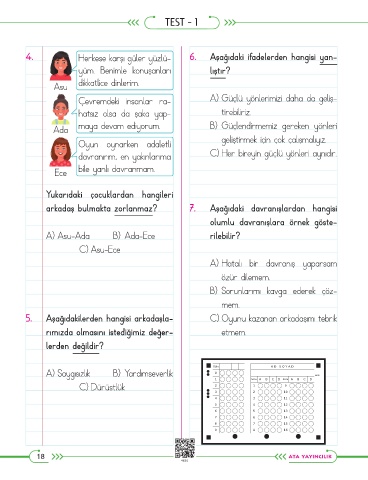 TEST - 1
4.
Herkese karşı güler yüzlü-
yüm. Benimle konuşanları
dikkatlice dinlerim.
Asu
Çevremdeki insanlar ra-
hatsız olsa da şaka yap-
maya devam ediyorum.
Ada
Oyun oynarken adaletli
davranırım, en yakınlarıma
bile yanlı davranmam.
Ece
Yukarıdaki çocuklardan hangileri
arkadaş bulmakta zorlanmaz?
A) Asu-Ada B) Ada-Ece
C) Asu-Ece
5. Aşağıdakilerden hangisi arkadaşla-
rımızda olmasını istediğimiz değer-
lerden değildir?
A) Saygısızlık B) Yardımseverlik
C) Dürüstlük
6. Aşağıdaki ifadelerden hangisi yan-
lıştır?
A) Güçlü yönlerimizi daha da geliş-
tirebiliriz.
B) Güçlendirmemiz gereken yönleri
geliştirmek için çok çalışmalıyız.
C) Her bireyin güçlü yönleri aynıdır.
7. Aşağıdaki davranışlardan hangisi
olumlu davranışlara örnek göste-
rilebilir?
A) Hatalı bir davranış yaparsam
özür dilemem.
B) Sorunlarımı kavga ederek çöz-
mem.
C) Oyunu kazanan arkadaşımı tebrik
etmem.
18
ATA YAYINCILIK